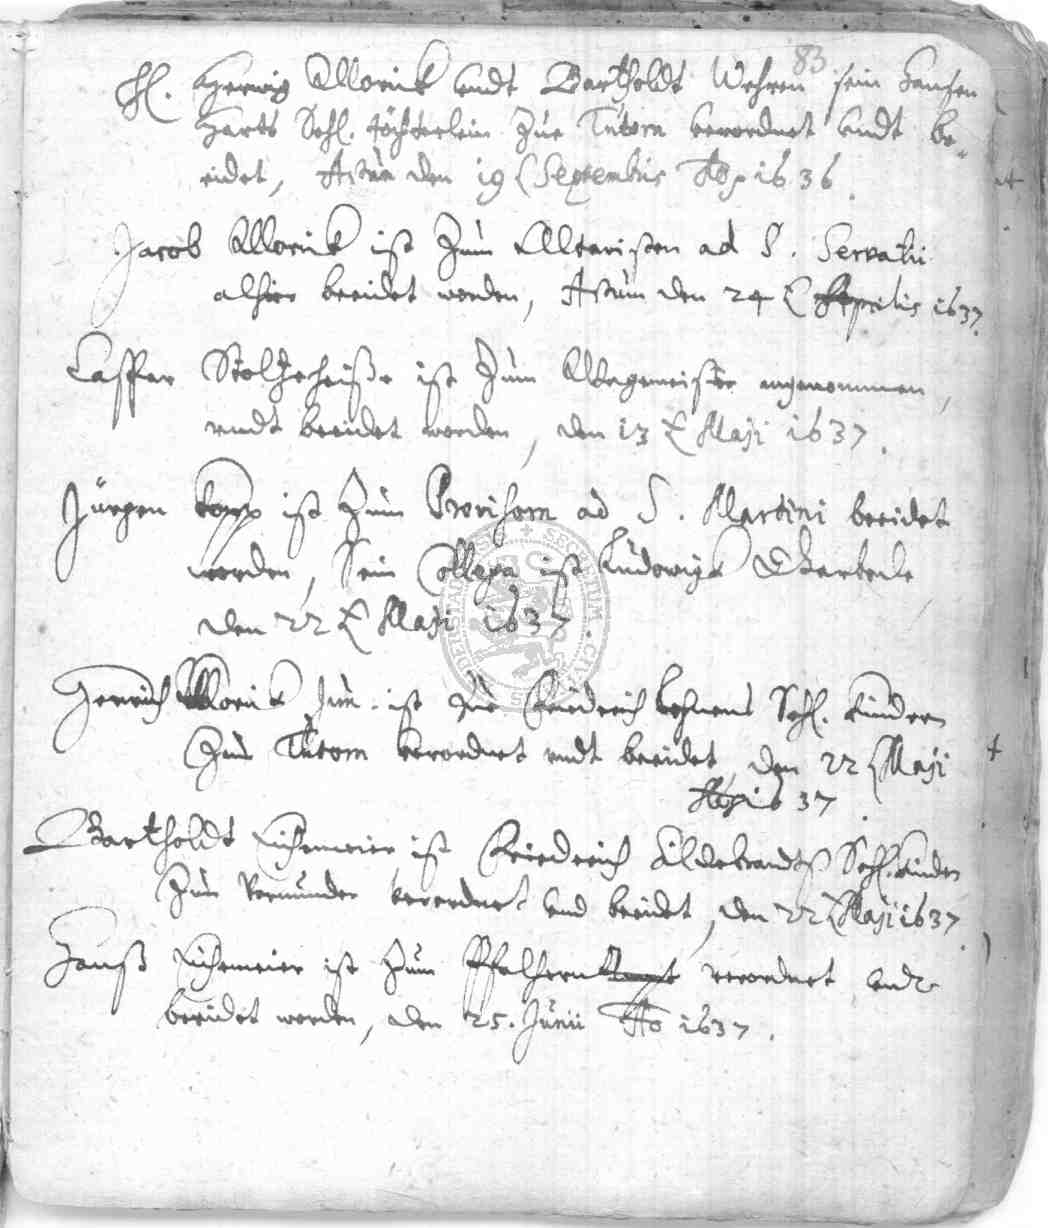 83
H. Henrig Morick undt Bartholdt Wehren sein Hansen
Harts Sehl. töchterlein zue Tutorn verordnet undt be-
eidet, Actum den 19 Septembris Ao 1636.
Jacob Morick ist zum Altaristen ad S. Servatii
alhier beeidet worden, Actum den 24 Aprilis 1637.
Casper ist zum Wegemeister angenommen,
undt beeidet worden, den 13 Maji 1637.
Jürgen Kopp ist zum Provisorn ad S. Martini beeidet
worden, Sein College ist Ludowig
den 22 Maji 1637.
Henrich Morick Jun. ist zue Friedrich Sehl. Kindern
Zum Tutorn verordnet undt beeidet, den 22 Maji
Ao 1637
Bartholdt Eichemeier ist Friedrich Hildebrandtß Sehl. Kinder
Zum Vormunder verordnet und beeidet, den 22 Maji 1637.
Hanß Eichemeier ist zum verordnet undt
beeidet worden, den 25. Junii Ao 1637.
SECRETUM CIVI